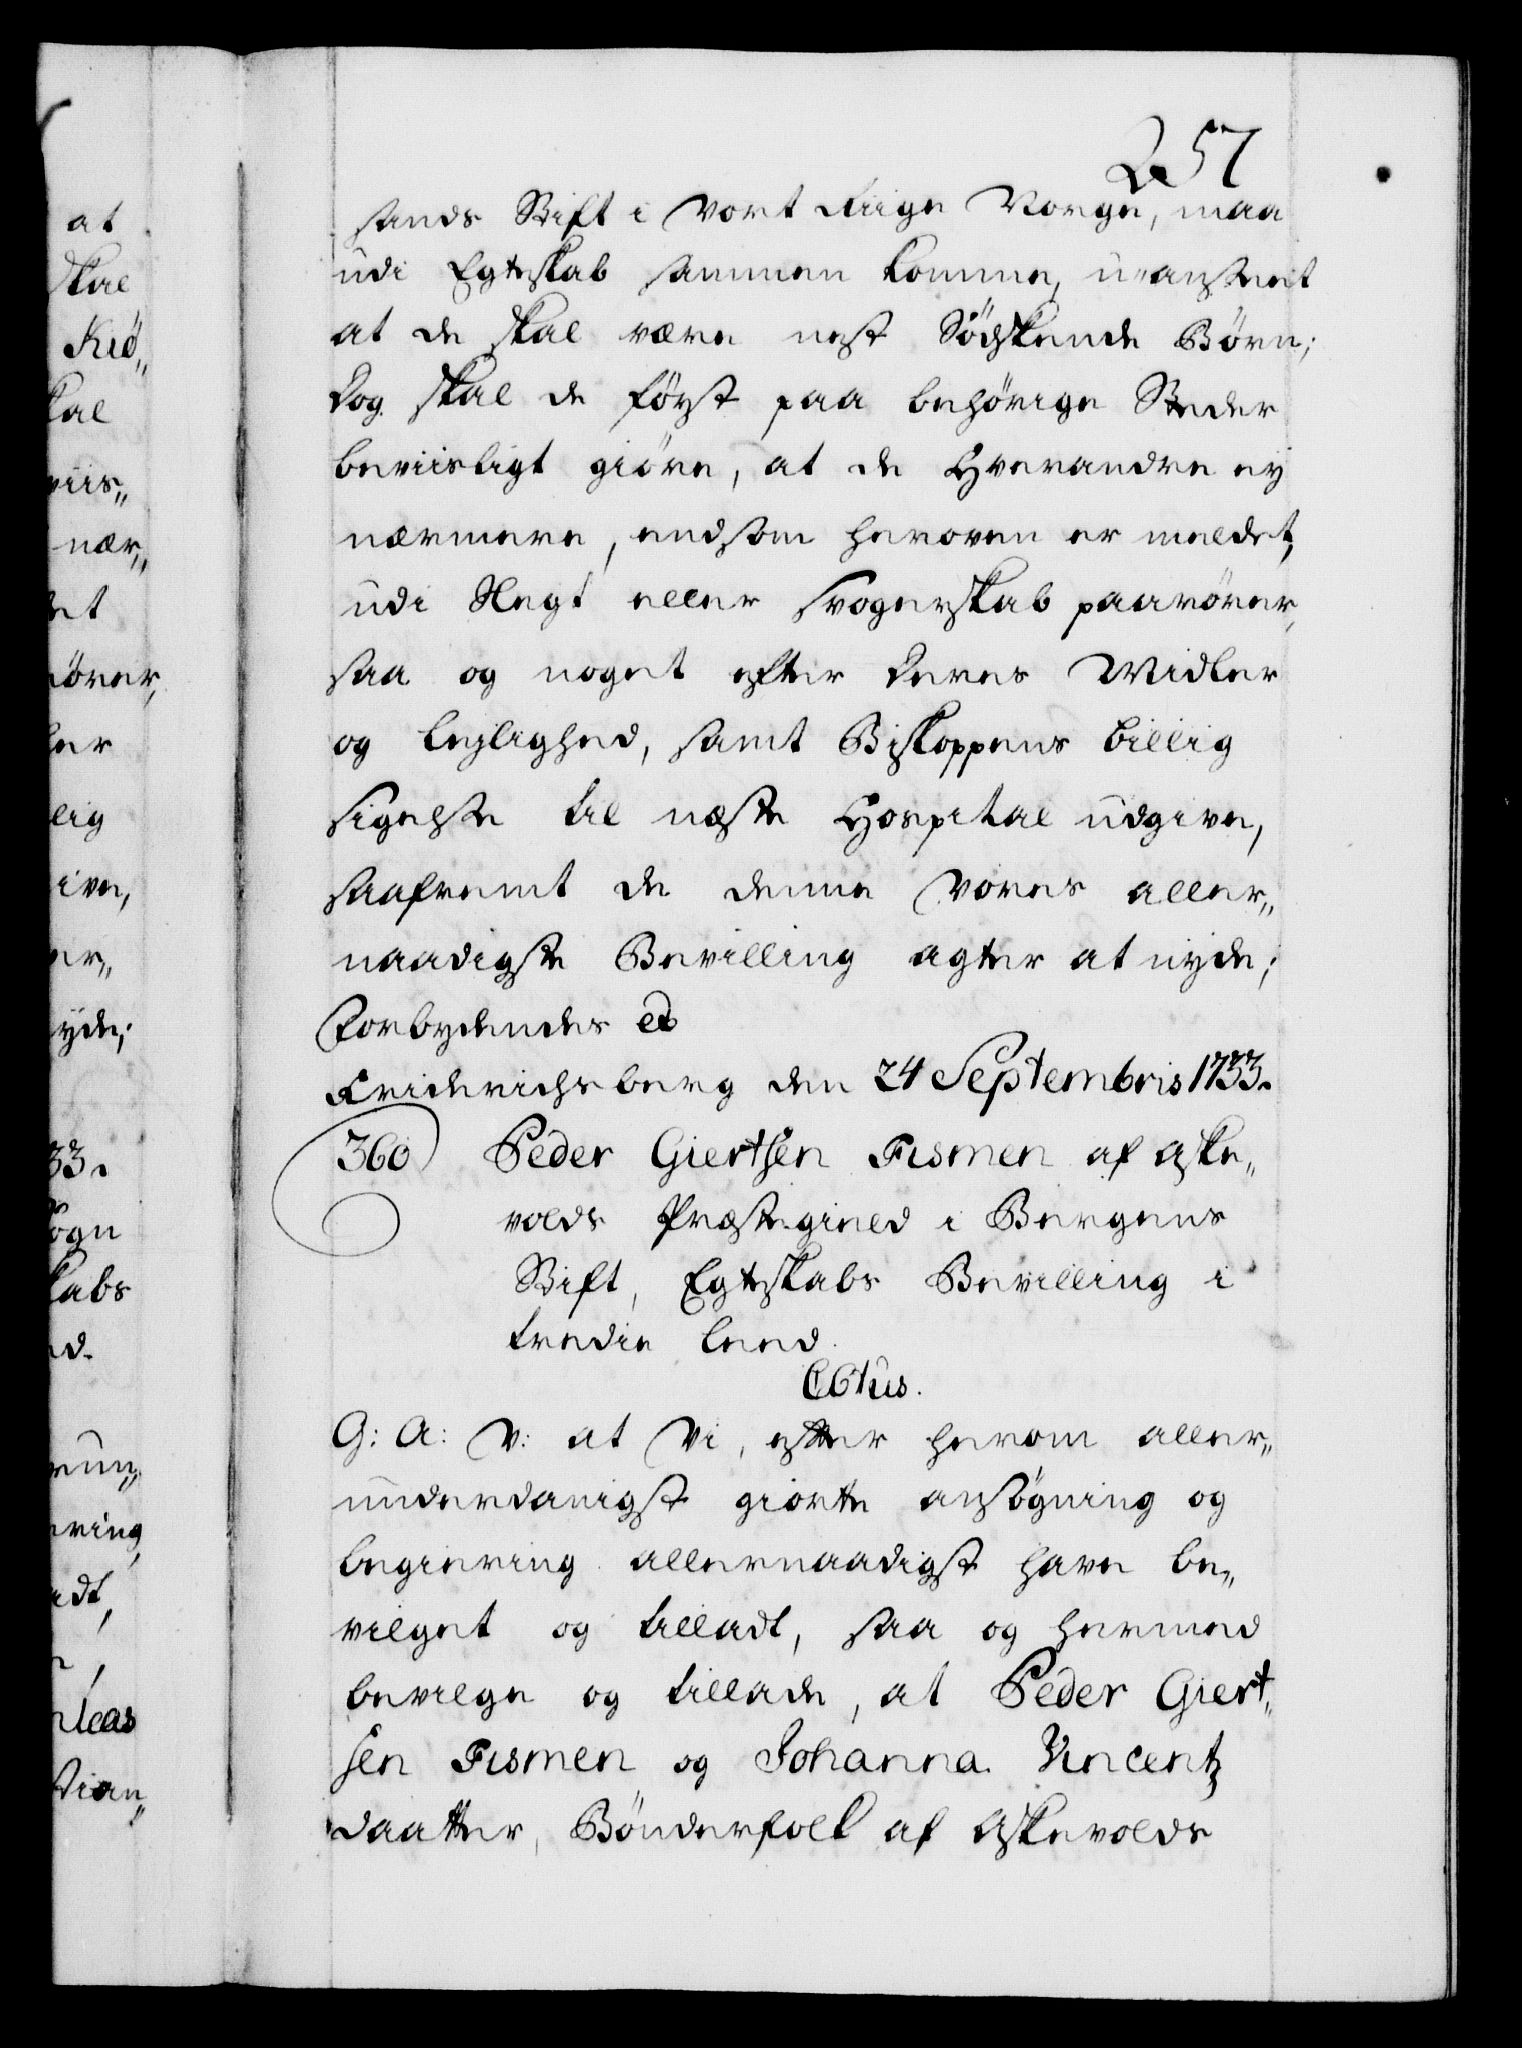 257
sands Stift i Vort Riige Norge, maa
udi Egteskab sammen komme, u-anseet
at de skal være nest Södskende Børn;
dog skal de først paa behörige Steder
beviisligt giöre, at de Hverandre ey
nærmere, end som heroven er meldet,
udi Slegt eller Svogerskab paarörer,
saa og noget efter deres Midler
og lejlighed, samt Biskoppens billig
sigelse til næste Hospital udgive,
saafremt de denne Vores aller„
naadigste Bevilling agter at nyde;
Forbydendes etc
Friderichsberg den 24 Septembris 1733.
360) Peder Giertsen Fismen af Aske„
volds Præstegield i Bergens
Stift, Egteskabs Bevilling i
tredie leed.
G: A: V: at Vi, efter herom aller„
underdanigst giorte ansøgning og
begiering allernaadigst have be„
vilget og tilladt, saa og hermed
bevilge og tillade, at Peder Giert„
sen Fismen og Johanna Vincentz
daatter, Bönderfolk af Askevolds
at
skal
Kiö„
kal
viis„
nær„
det
rörer,
ler
lig
give,
er„
nyde;
33.
ogn
kabs
ed.
run„
ering
adt,
n,